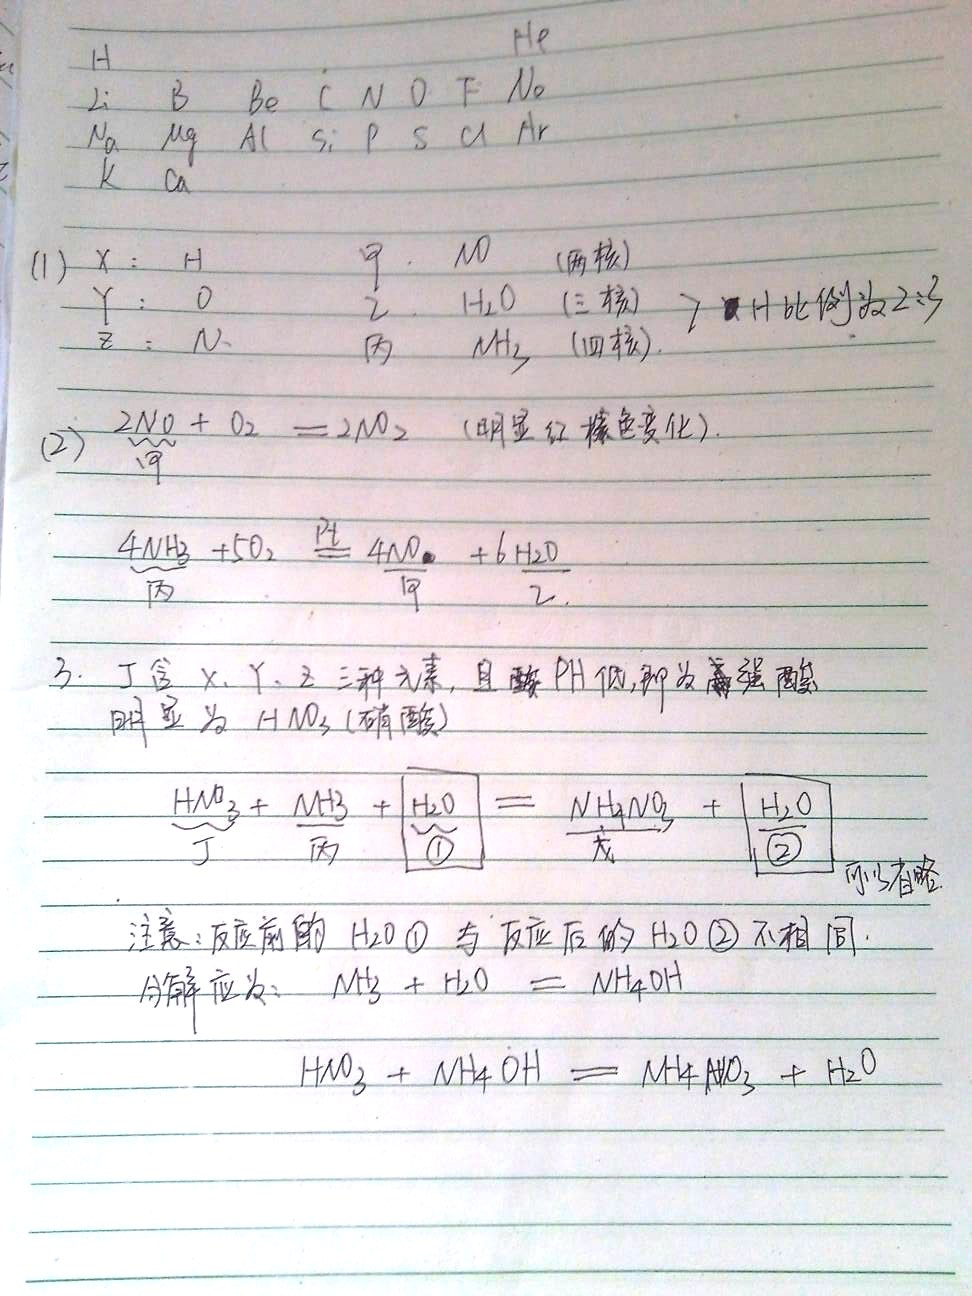 He
H
Li B Be C N O F Ne
Na Mg Al Si P S Cl Ar
K Ca
(1) X: H 甲. NO (两核)
Y: O 乙. H2O (三核) > H比例为2:3
Z: N. 丙 NH3 (四核).
(2) 2NO + O2 = 2NO2 (明显红棕色变化).
甲
4NH3 + 5O2 Pt = 4NO + 6H2O
丙 甲 乙.
3. 丁含X、Y、Z三种元素,且酸PH低,即为强酸
明显为HNO3(硝酸)
HNO3 + NH3 + H2O = NH4NO3 + H2O
丁 丙 ① 戊 ② 可以省略.
注意:反应前的H2O①与反应后的H2O②不相同.
分解应为: NH3 + H2O = NH4OH
HNO3 + NH4OH = NH4NO3 + H2O